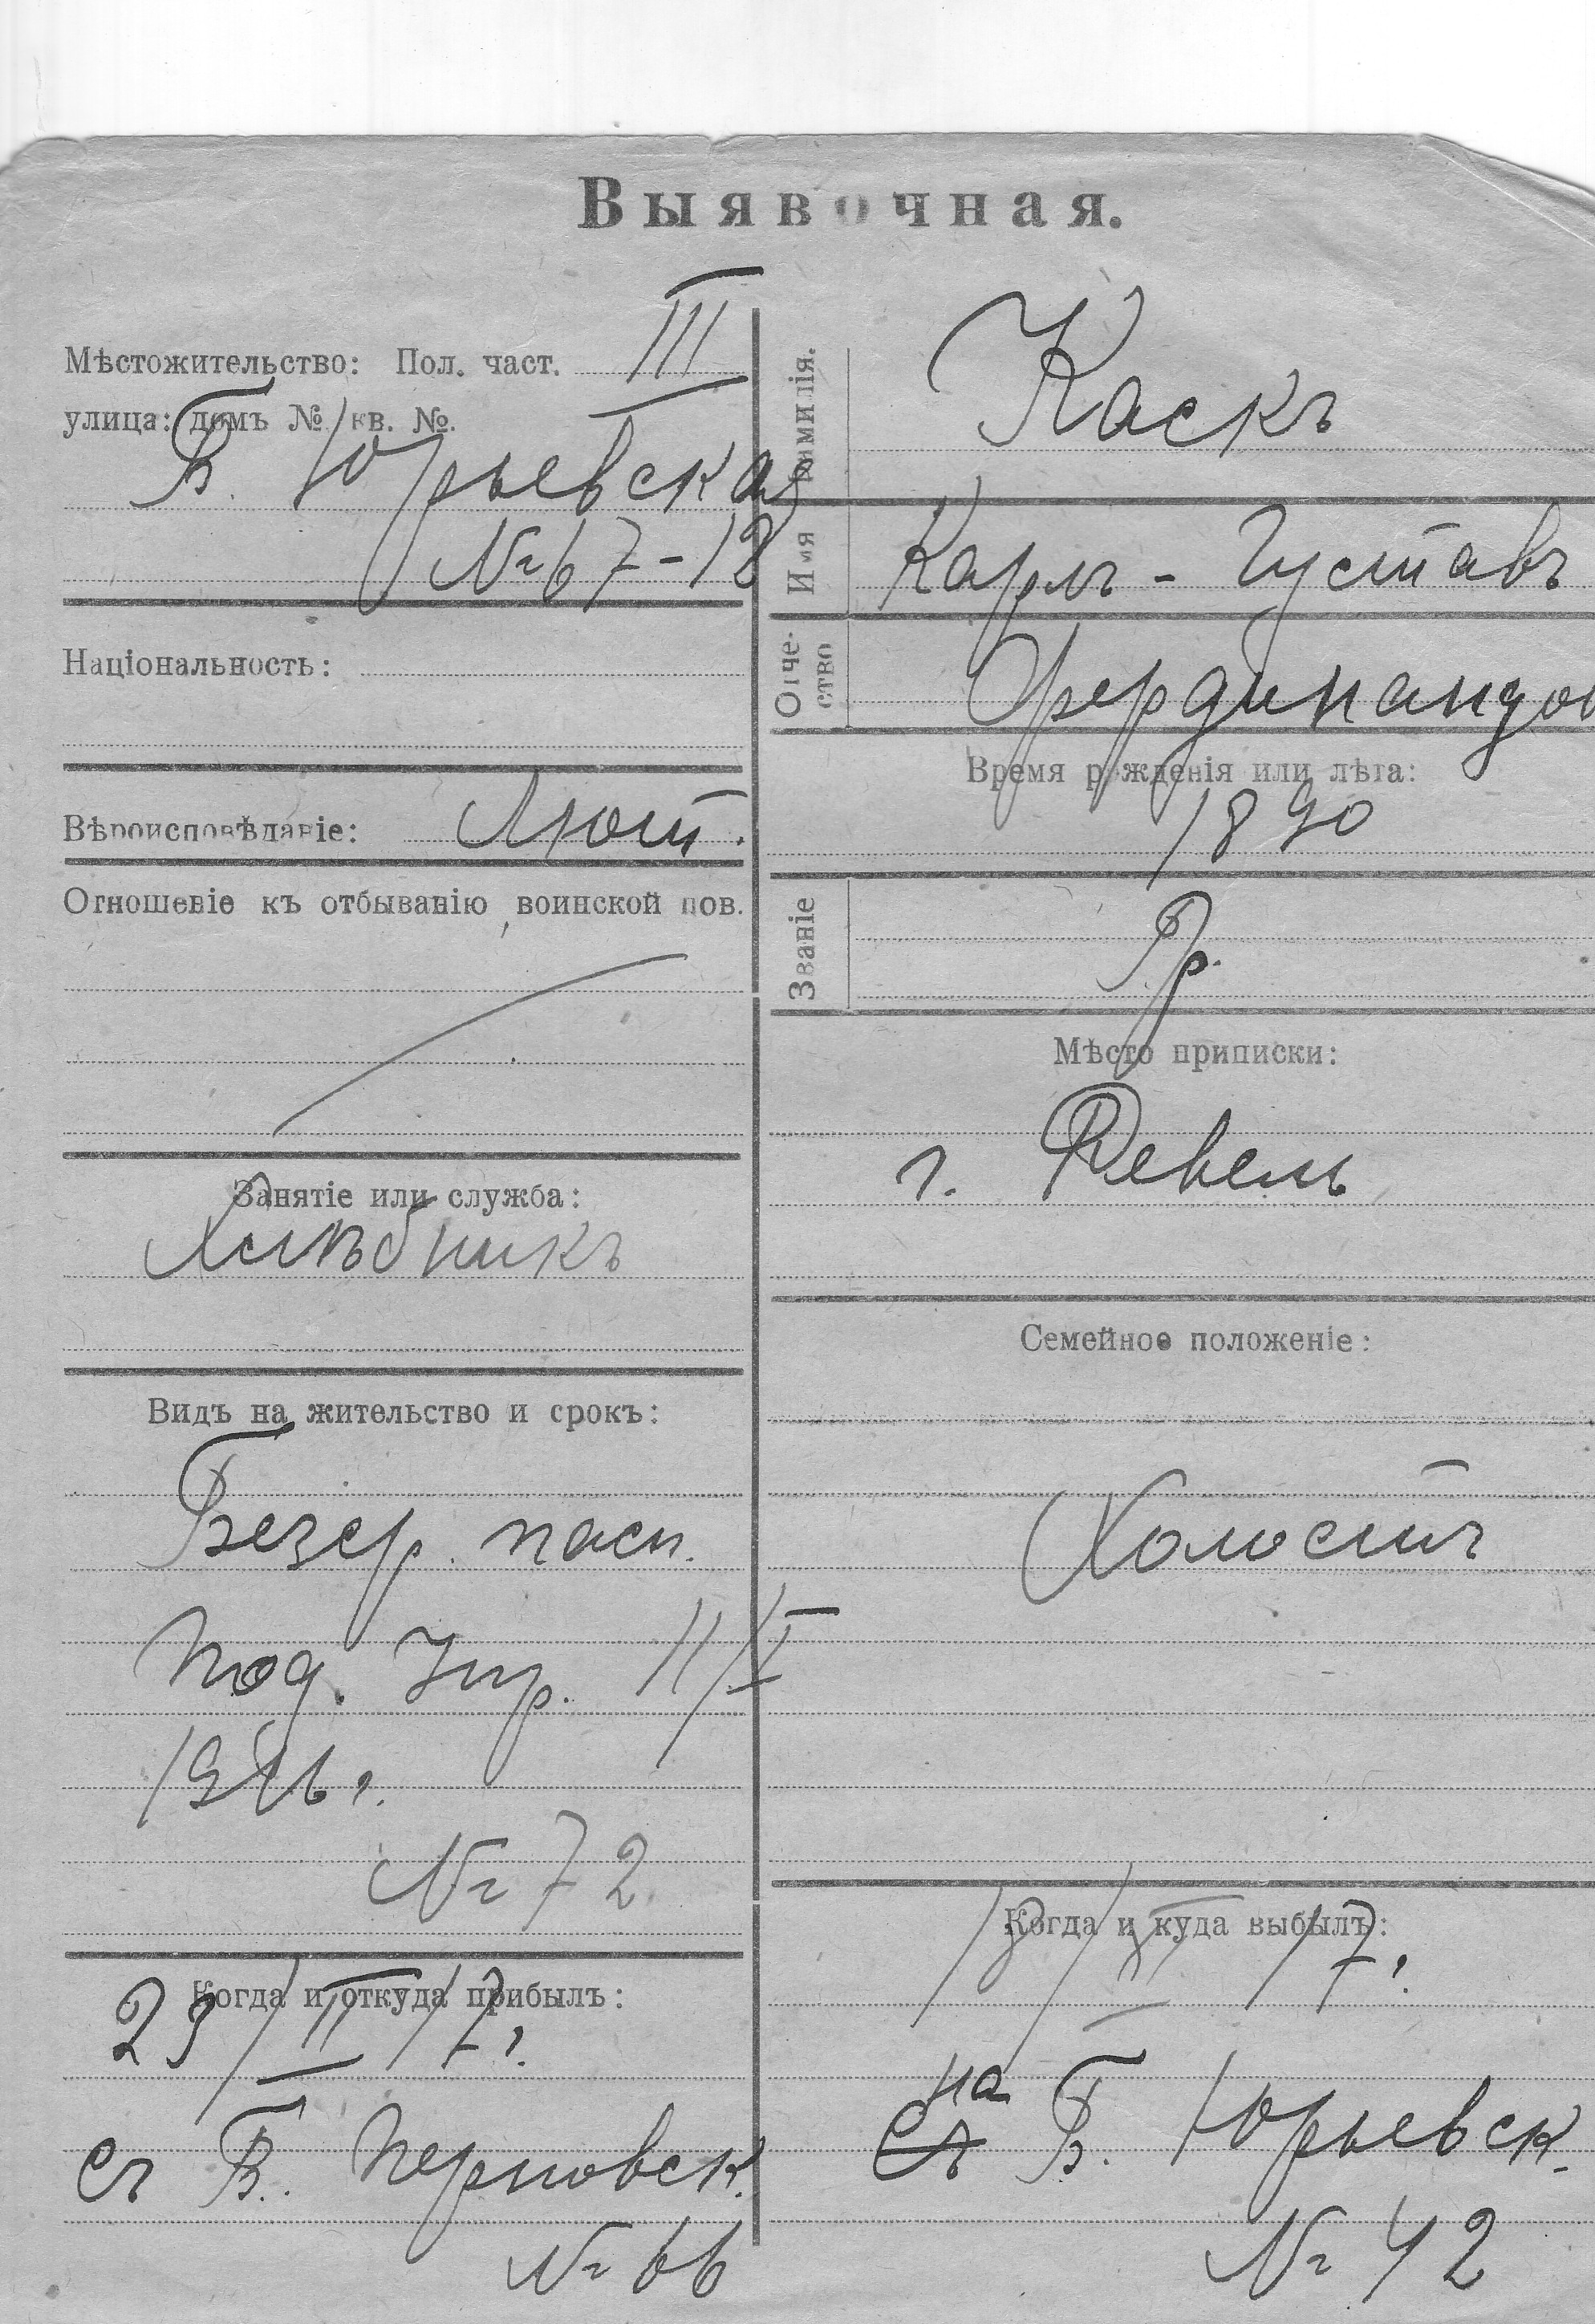 Выявочная.
Мѣстожительство: Пол. част. III
улица: домъ № кв. №.
Б. Юрьевская
№ 67-18
Національность:
Вѣроисповѣданіе: Лют.
Отношеніе къ отбыванію воинской пов.
Занятіе или служба:
Хлѣбникъ
Видъ на жительство и срокъ:
Безср. пасп.
Под. Упр. 11/I
№ 72
Когда и откуда прибылъ:
23/II 17 г.
съ Б. Перновск.
№ 66
Фамилія.
Каскъ
Имя
Карлъ-Густавъ
Отче-
ство
Фердинандов
Время рожденія или лѣта:
1890
Званіе
Гр.
Мѣсто приписки:
г. Ревель
Семейное положеніе:
Холостъ
Когда и куда выбылъ:
17 г.
на
съ Б. Юрьевск.
№ 42